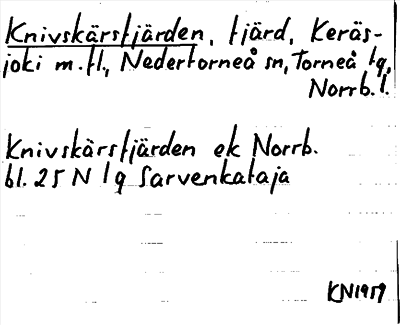 Knivskärsfjärden, fjärd, Keräs-
joki m.fl., Nedertorneå sn, Torneå tg,
Norrb. l.
Knivskärsfjärden ek Norrb.
bl. 25 N l q Sarvenkataja
KN1959